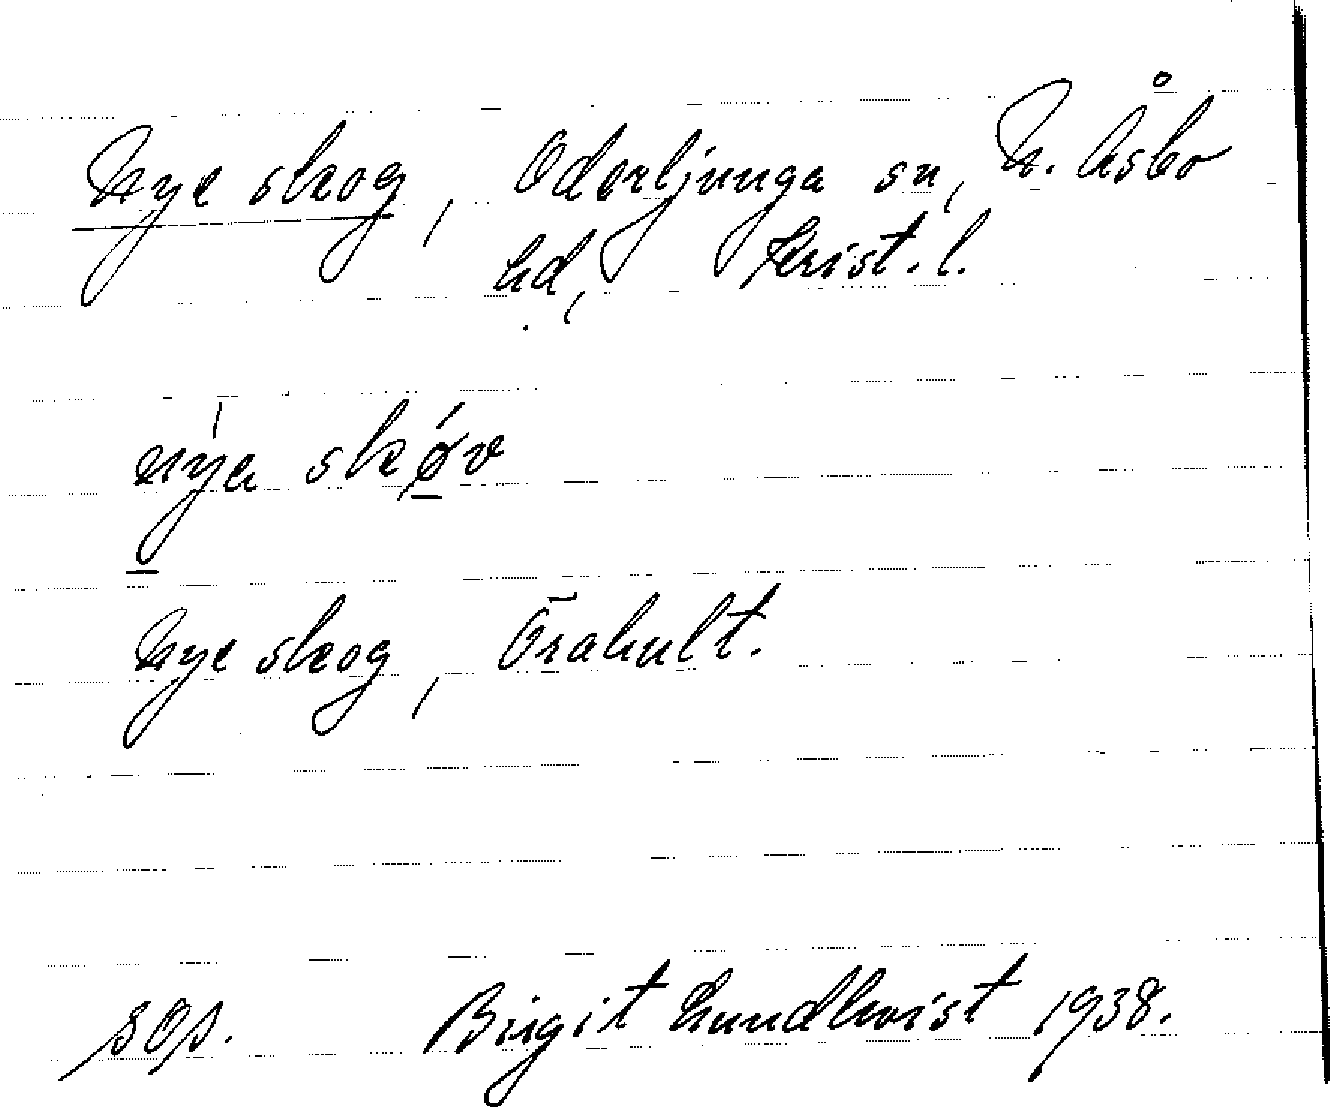 Nye skog, Oderljunga sn, N. Åsbo
hd, Krist. l.
nýa skǿv
Nye skog, Örahult.
sop. Birgit Lundkvist 1938.